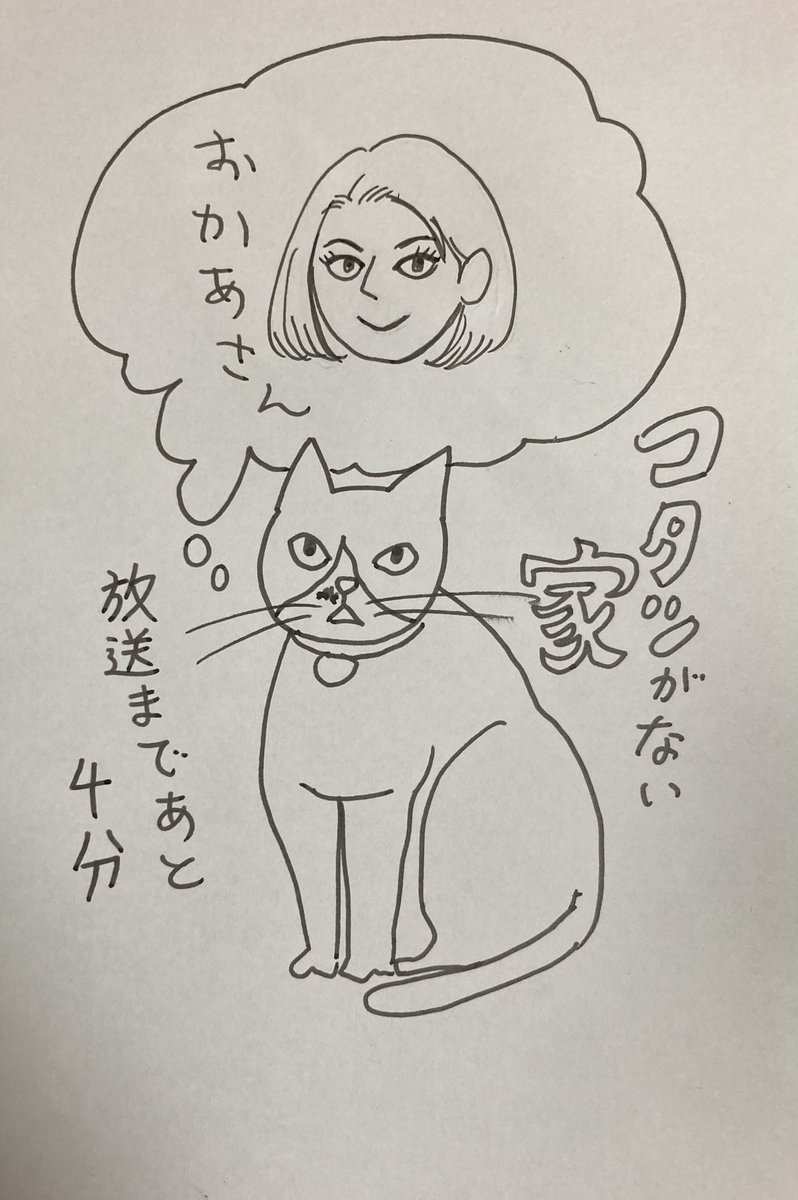 おかあさん
コタツがない
家
放送まであと
4分